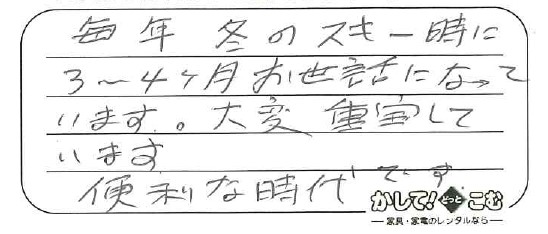 毎年 冬のスキー時に
3〜4ヶ月お世話になって
います。大変 重宝して
います
便利な時代です
かして!どっとこむ
家具・家電のレンタルなら